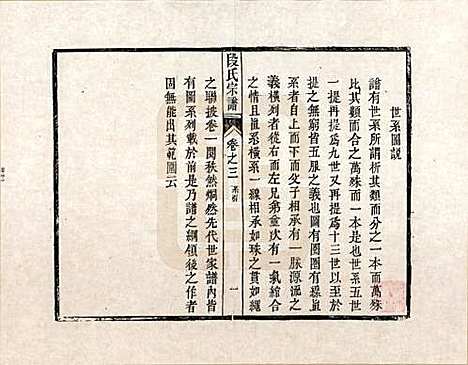 世系圖說
譜有世系所謂析其類而分之一本而萬殊
比其類而合之萬殊而一本是也世系五世
一提再提爲九世又再提爲十三世以至於
提之無窮皆五服之義也圖有圈圈有線直
系者自上而下父子相承有一脈源流之
義橫列者從右而左兄弟並次有一氣綰合
之情且直系橫系一線相合如珠之貫如繩
段氏宗譜
卷之三
系引
一
之聯披卷一閱秩然炯然先代世家譜內皆
有圖系列載於前是乃譜之綱領後之作者
因無能出其範圍云